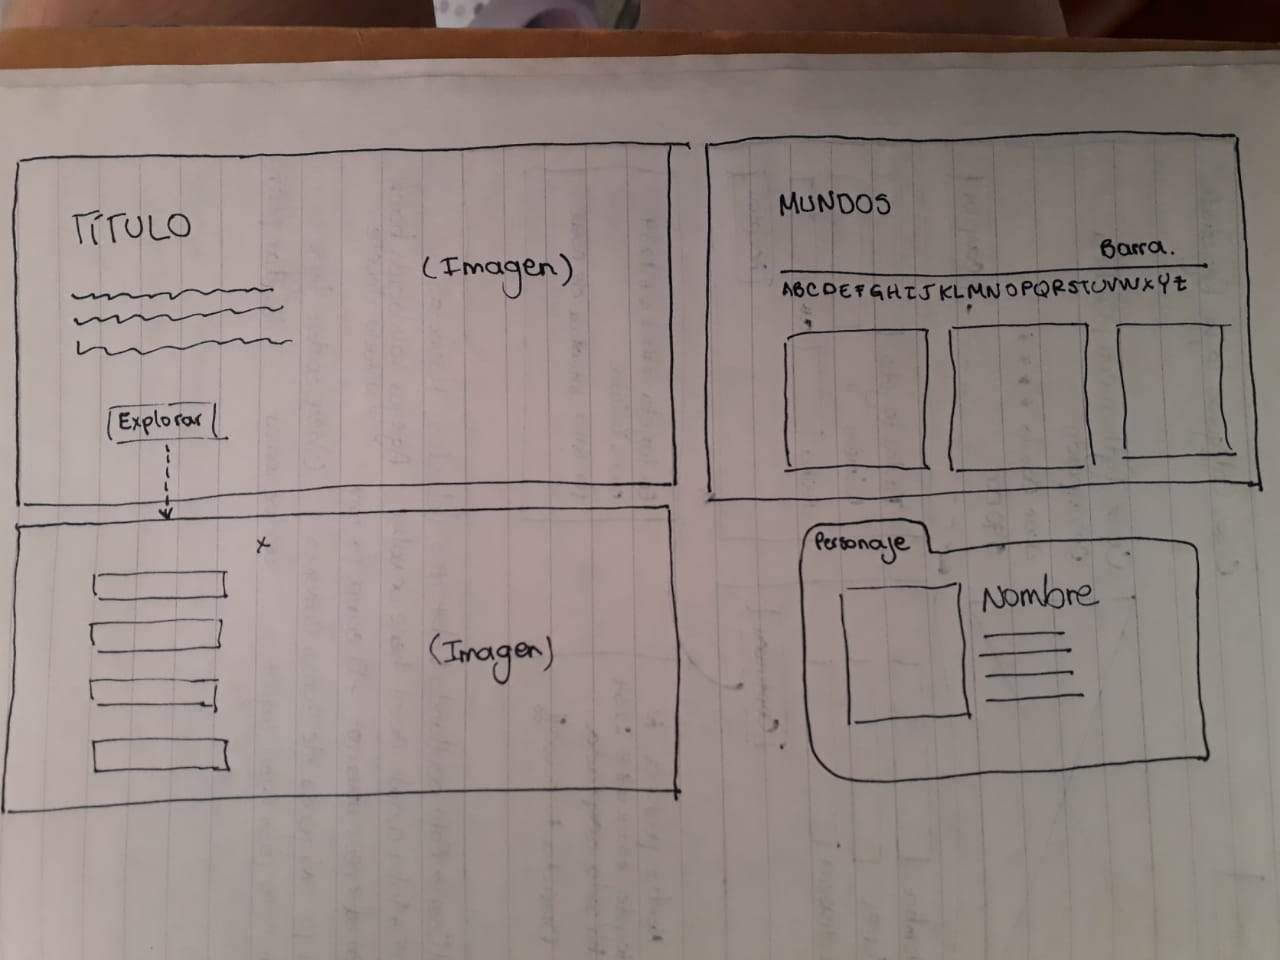 TÍTULO
(Imagen)
Explorar
x
(Imagen)
MUNDOS
Barra.
ABCDEFGHIJKLMNOPQRSTUVWXYZ
Personaje
Nombre